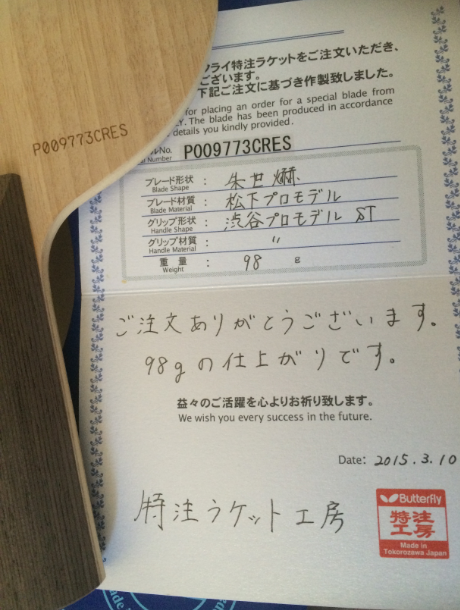 フライ特注ラケットをご注文いただき、
ございます。
下記ご注文に基づき作製致しました。
for placing an order for a special blade from
The blade has been produced in accordance
details you kindly provided.
P009773CRES
No. P009773CRES
Number
ブレード形状 : 朱世爀
Blade Shape
ブレード材質 : 松下プロモデル
Blade Material
グリップ形状 : 渋谷プロモデル ST
Handle Shape
グリップ材質 : 〃
Handle Material
重量 : 98 g
Weight
ご注文ありがとうございます.
98gの仕上がりです。
益々のご活躍を心よりお祈り致します。
We wish you every success in the future.
Date: 2015.3.10
特注ラケット工房
Butterfly
特注
工房
Made in
Tokorozawa Japan